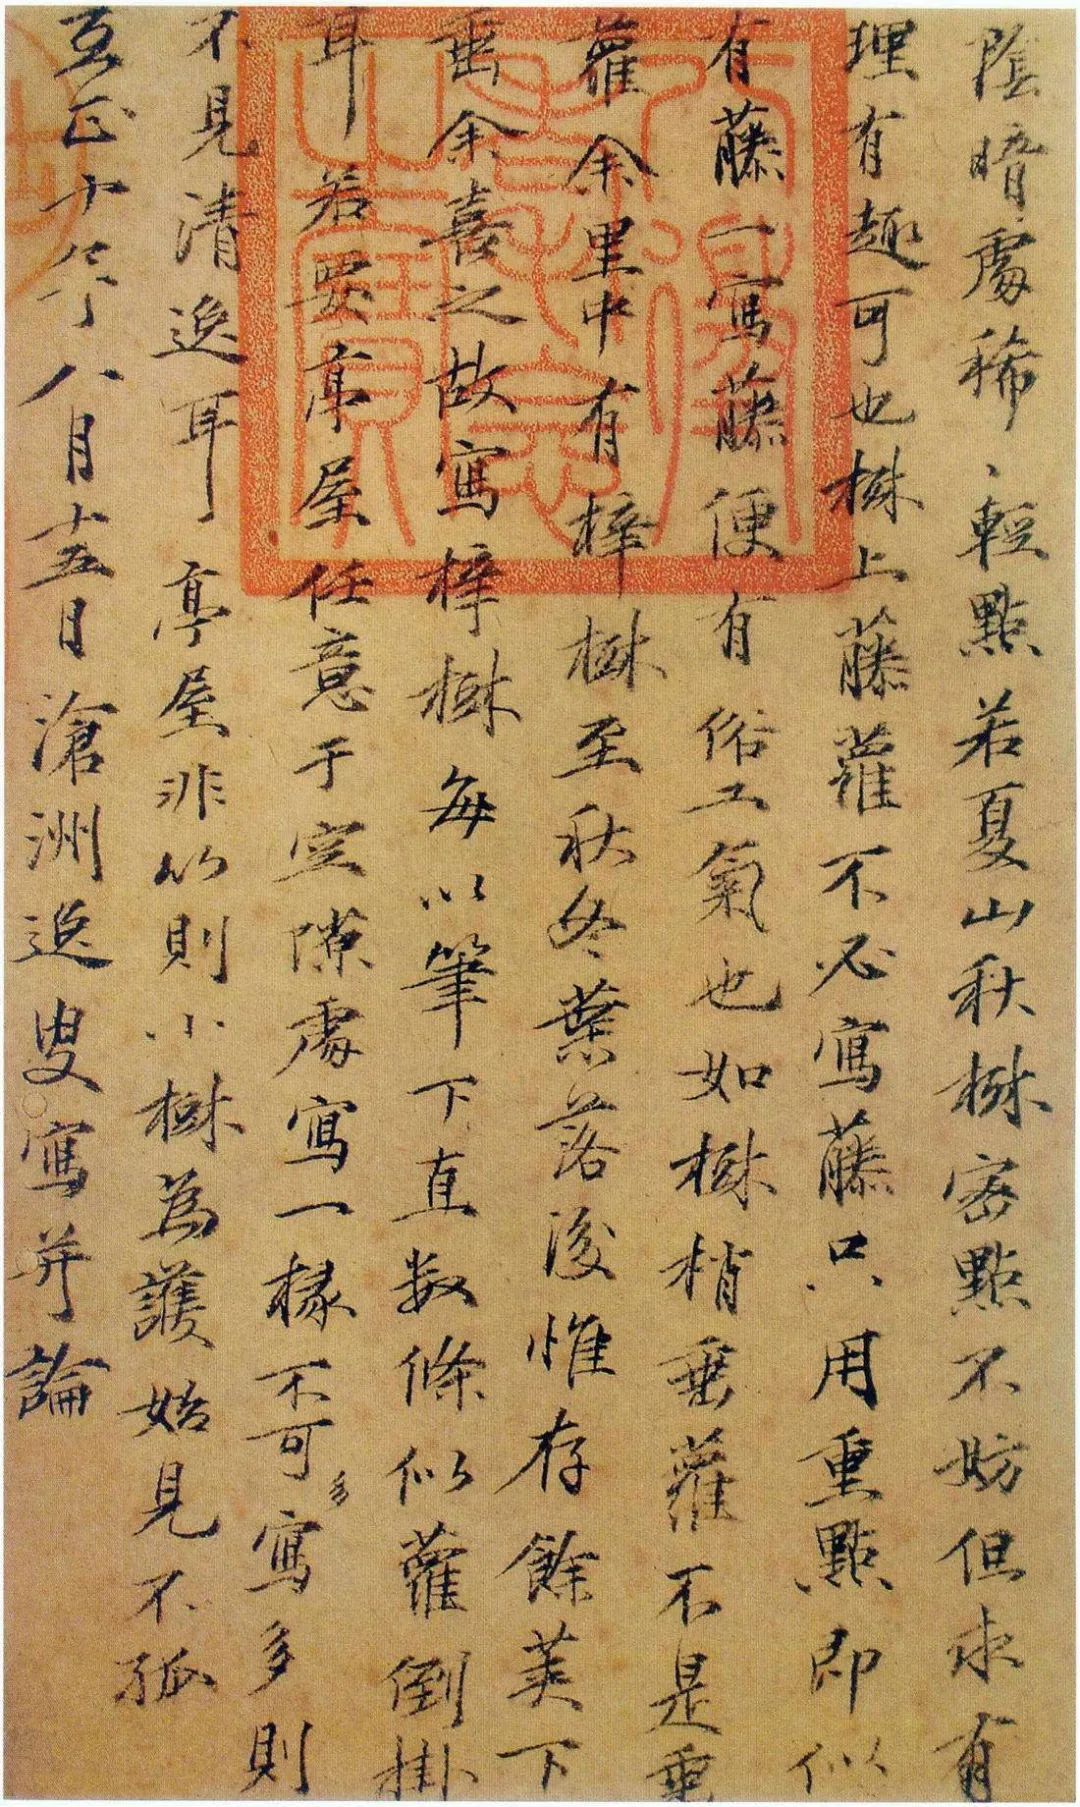 陰暗處稀々輕點若夏山秋樹密點不妨但求有
理有趣可也樹上藤蘿不必寫藤只用重點即似
有藤一寫藤便有俗工氣也如樹梢垂蘿不是垂
蘿余里中有梓樹至秋冬葉落後惟存餘莢下
垂余喜之故寫梓樹每以筆下直數條似蘿倒掛
耳若要亭屋任意于空隙處寫一椽不可多寫多則
不見清逸耳亭屋非竹則小樹為護始見不孤
至正十年八月十五日滄洲逸叟寫并論